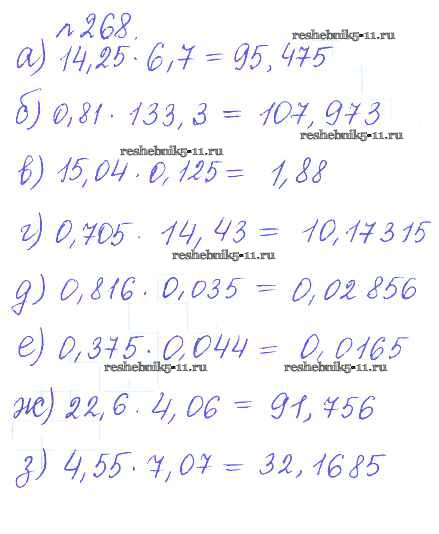 №268.
reshebnik5-11.ru
а) 14,25 · 6,7 = 95,475
б) 0,81 · 133,3 = 107,973
reshebnik5-11.ru
reshebnik5-11.ru
в) 15,04 · 0,125 = 1,88
г) 0,705 · 14,43 = 10,17315
reshebnik5-11.ru
д) 0,816 · 0,035 = 0,02856
е) 0,375 · 0,044 = 0,0165
reshebnik5-11.ru reshebnik5-11.ru
ж) 22,6 · 4,06 = 91,756
з) 4,55 · 7,07 = 32,1685